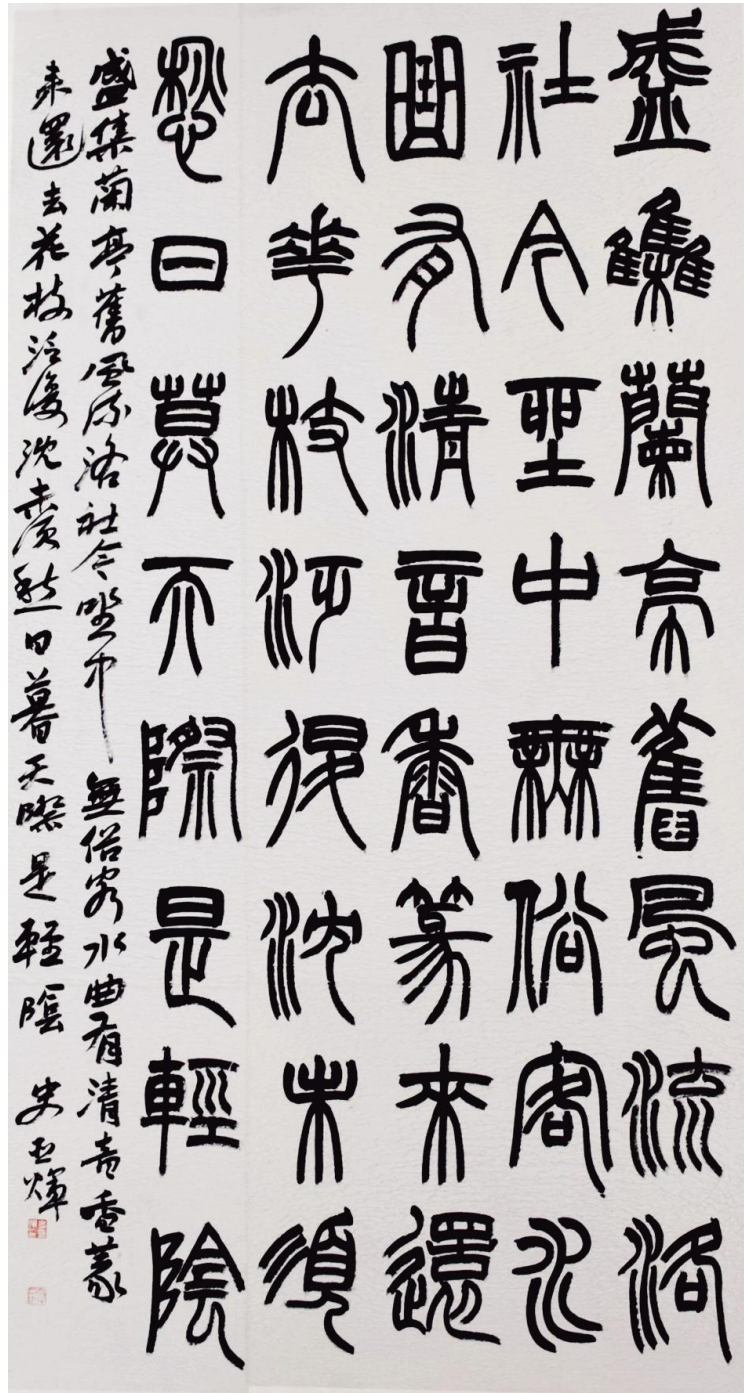 盛集蘭亭舊風流洛
社今坐中無俗客水
曲有清音香篆來還
去華枝泛復沈未須
愁日莫天際是輕陰
盛集蘭亭舊風流洛社今坐中無俗客水曲有清音香篆
來還去花枝泛復沈未須愁日暮天際是輕陰 史